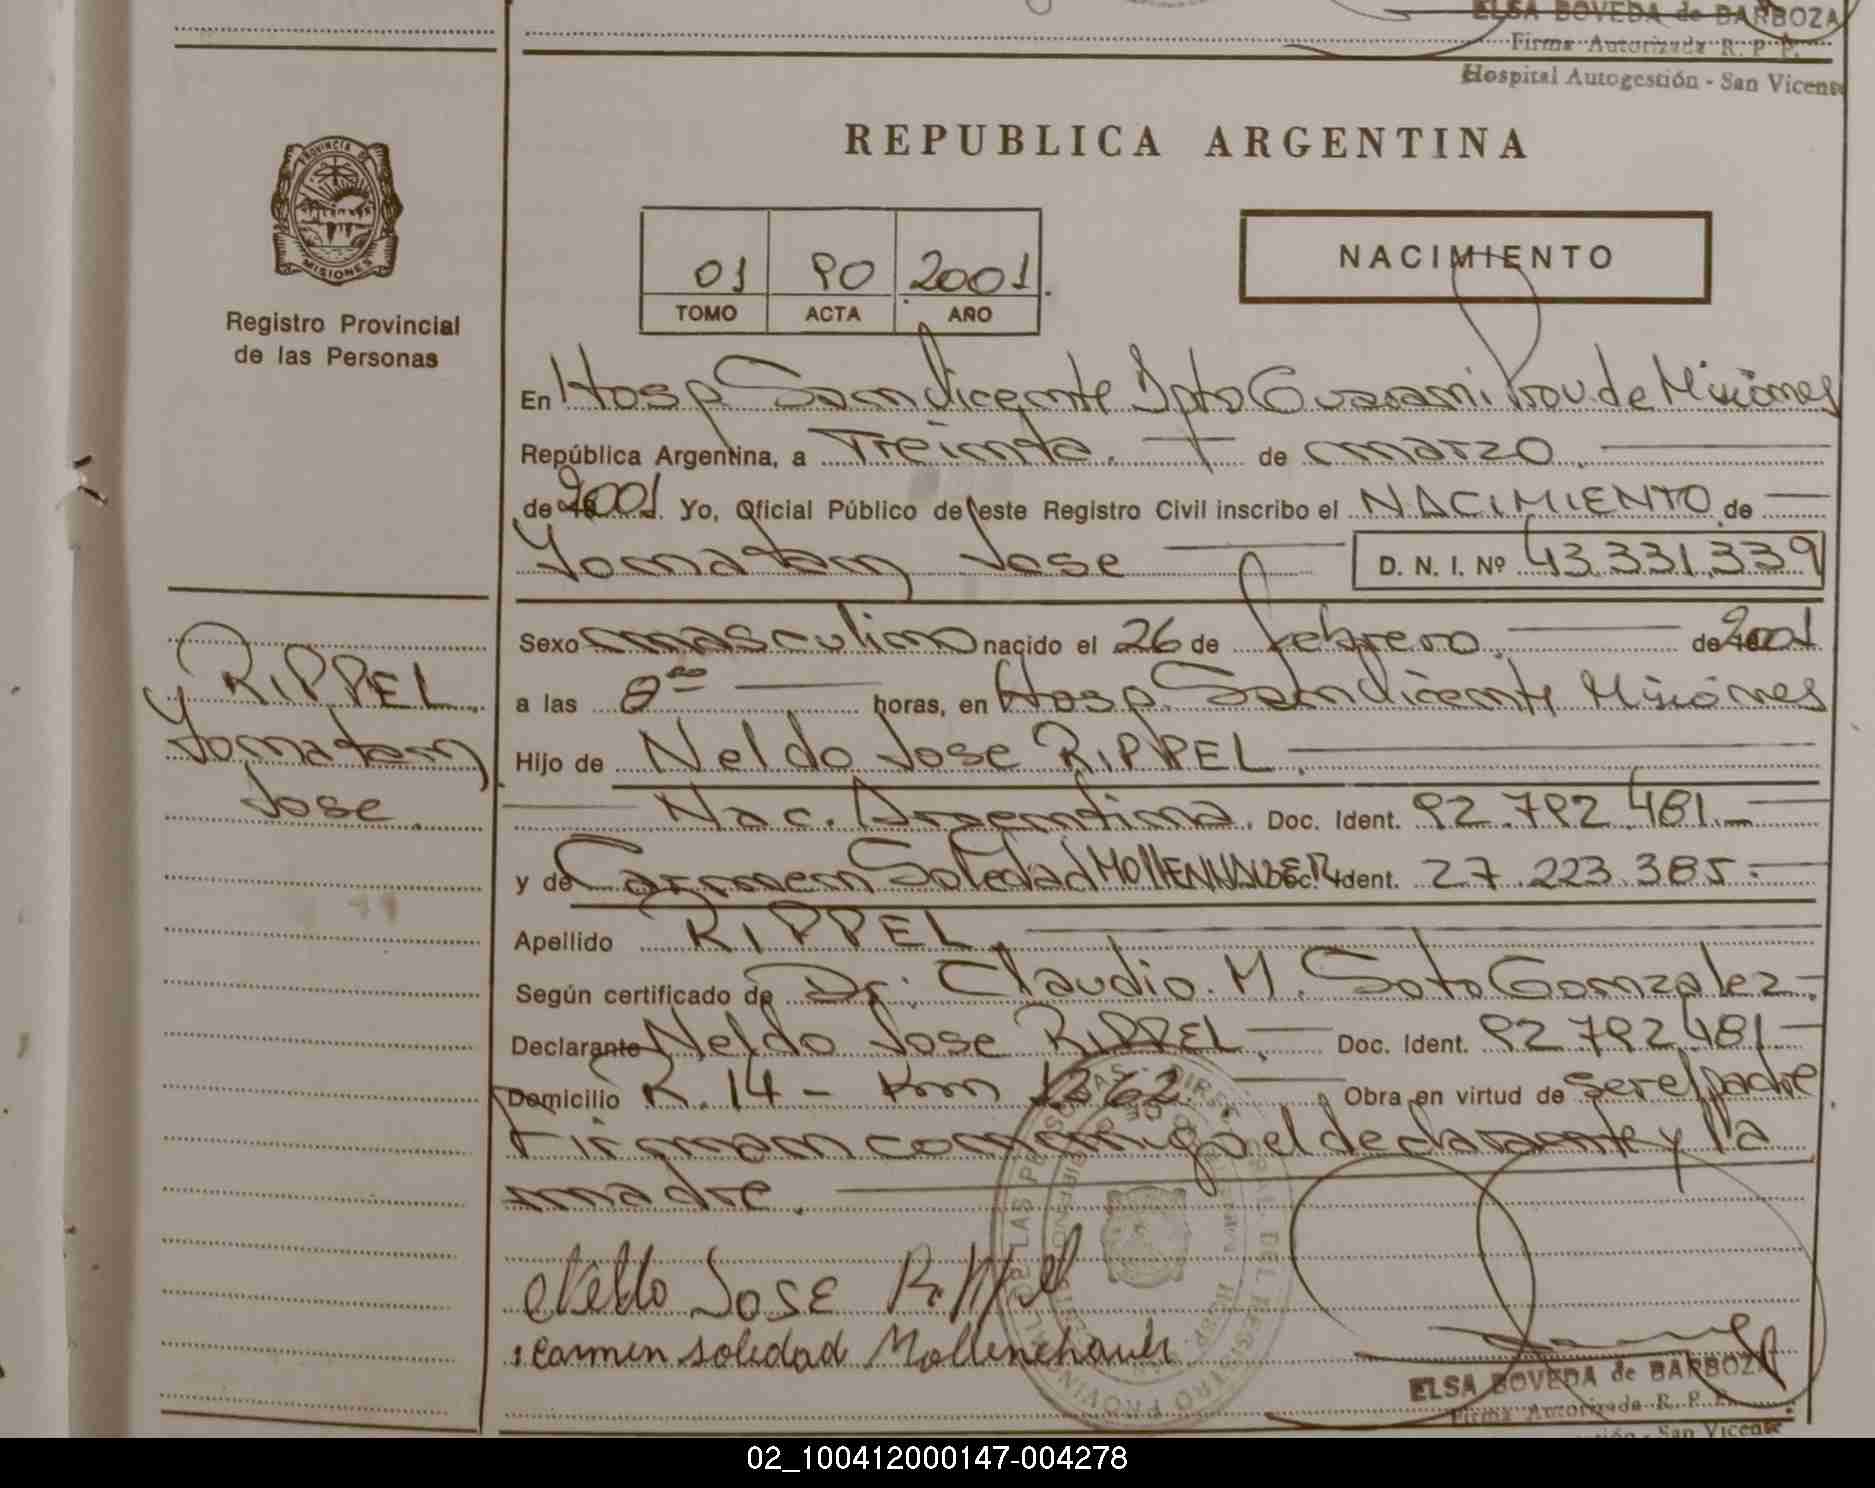 ELSA BOVEDA de BARBOZA
Firma Autorizada R. P. P.
Hospital Autogestión - San Vicente
PROVINCIA DE
MISIONES
Registro Provincial
de las Personas
REPUBLICA ARGENTINA
01 90 2001
TOMO ACTA AÑO
NACIMIENTO
En Hosp San Vicente Dpto Guarani Prov de Misiones
República Argentina, a Treinta. de marzo.
de 2001. Yo, Oficial Público de este Registro Civil inscribo el NACIMIENTO de
Yonatan Jose D. N. I. Nº 43.331.339
Sexo masculino nacido el 26 de febrero. de 2001
a las 8 horas, en Hosp. San Vicente Misiones
Hijo de Neldo Jose RIPPEL.
Nac. Argentina. Doc. Ident. 92.792.481.-
y de Carmen Soledad MOLLENHAUER Doc. Ident. 27.223.385.-
Apellido RIPPEL.
RIPPEL
Yonatan
Jose.
Según certificado de Dr. Claudio. M. Soto Gonzalez.
Declarante Neldo Jose RIPPEL. Doc. Ident. 92.792.481.-
Domicilio R. 14 - Km 1262. Obra en virtud de ser el padre
Firman conmigo el declarante y la
madre.
Neldo JOSE Rippel
Carmen soledad Mollenehauer
ELSA BOVEDA de BARBOZA
Firma Autorizada R. P. P.
San Vicente
02_100412000147-004278